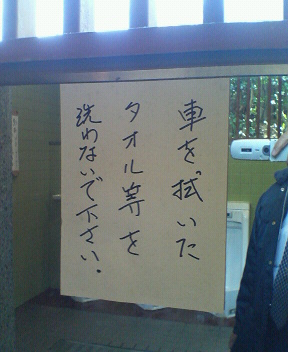 車を拭いた
タオル等を
洗わないで下さい.